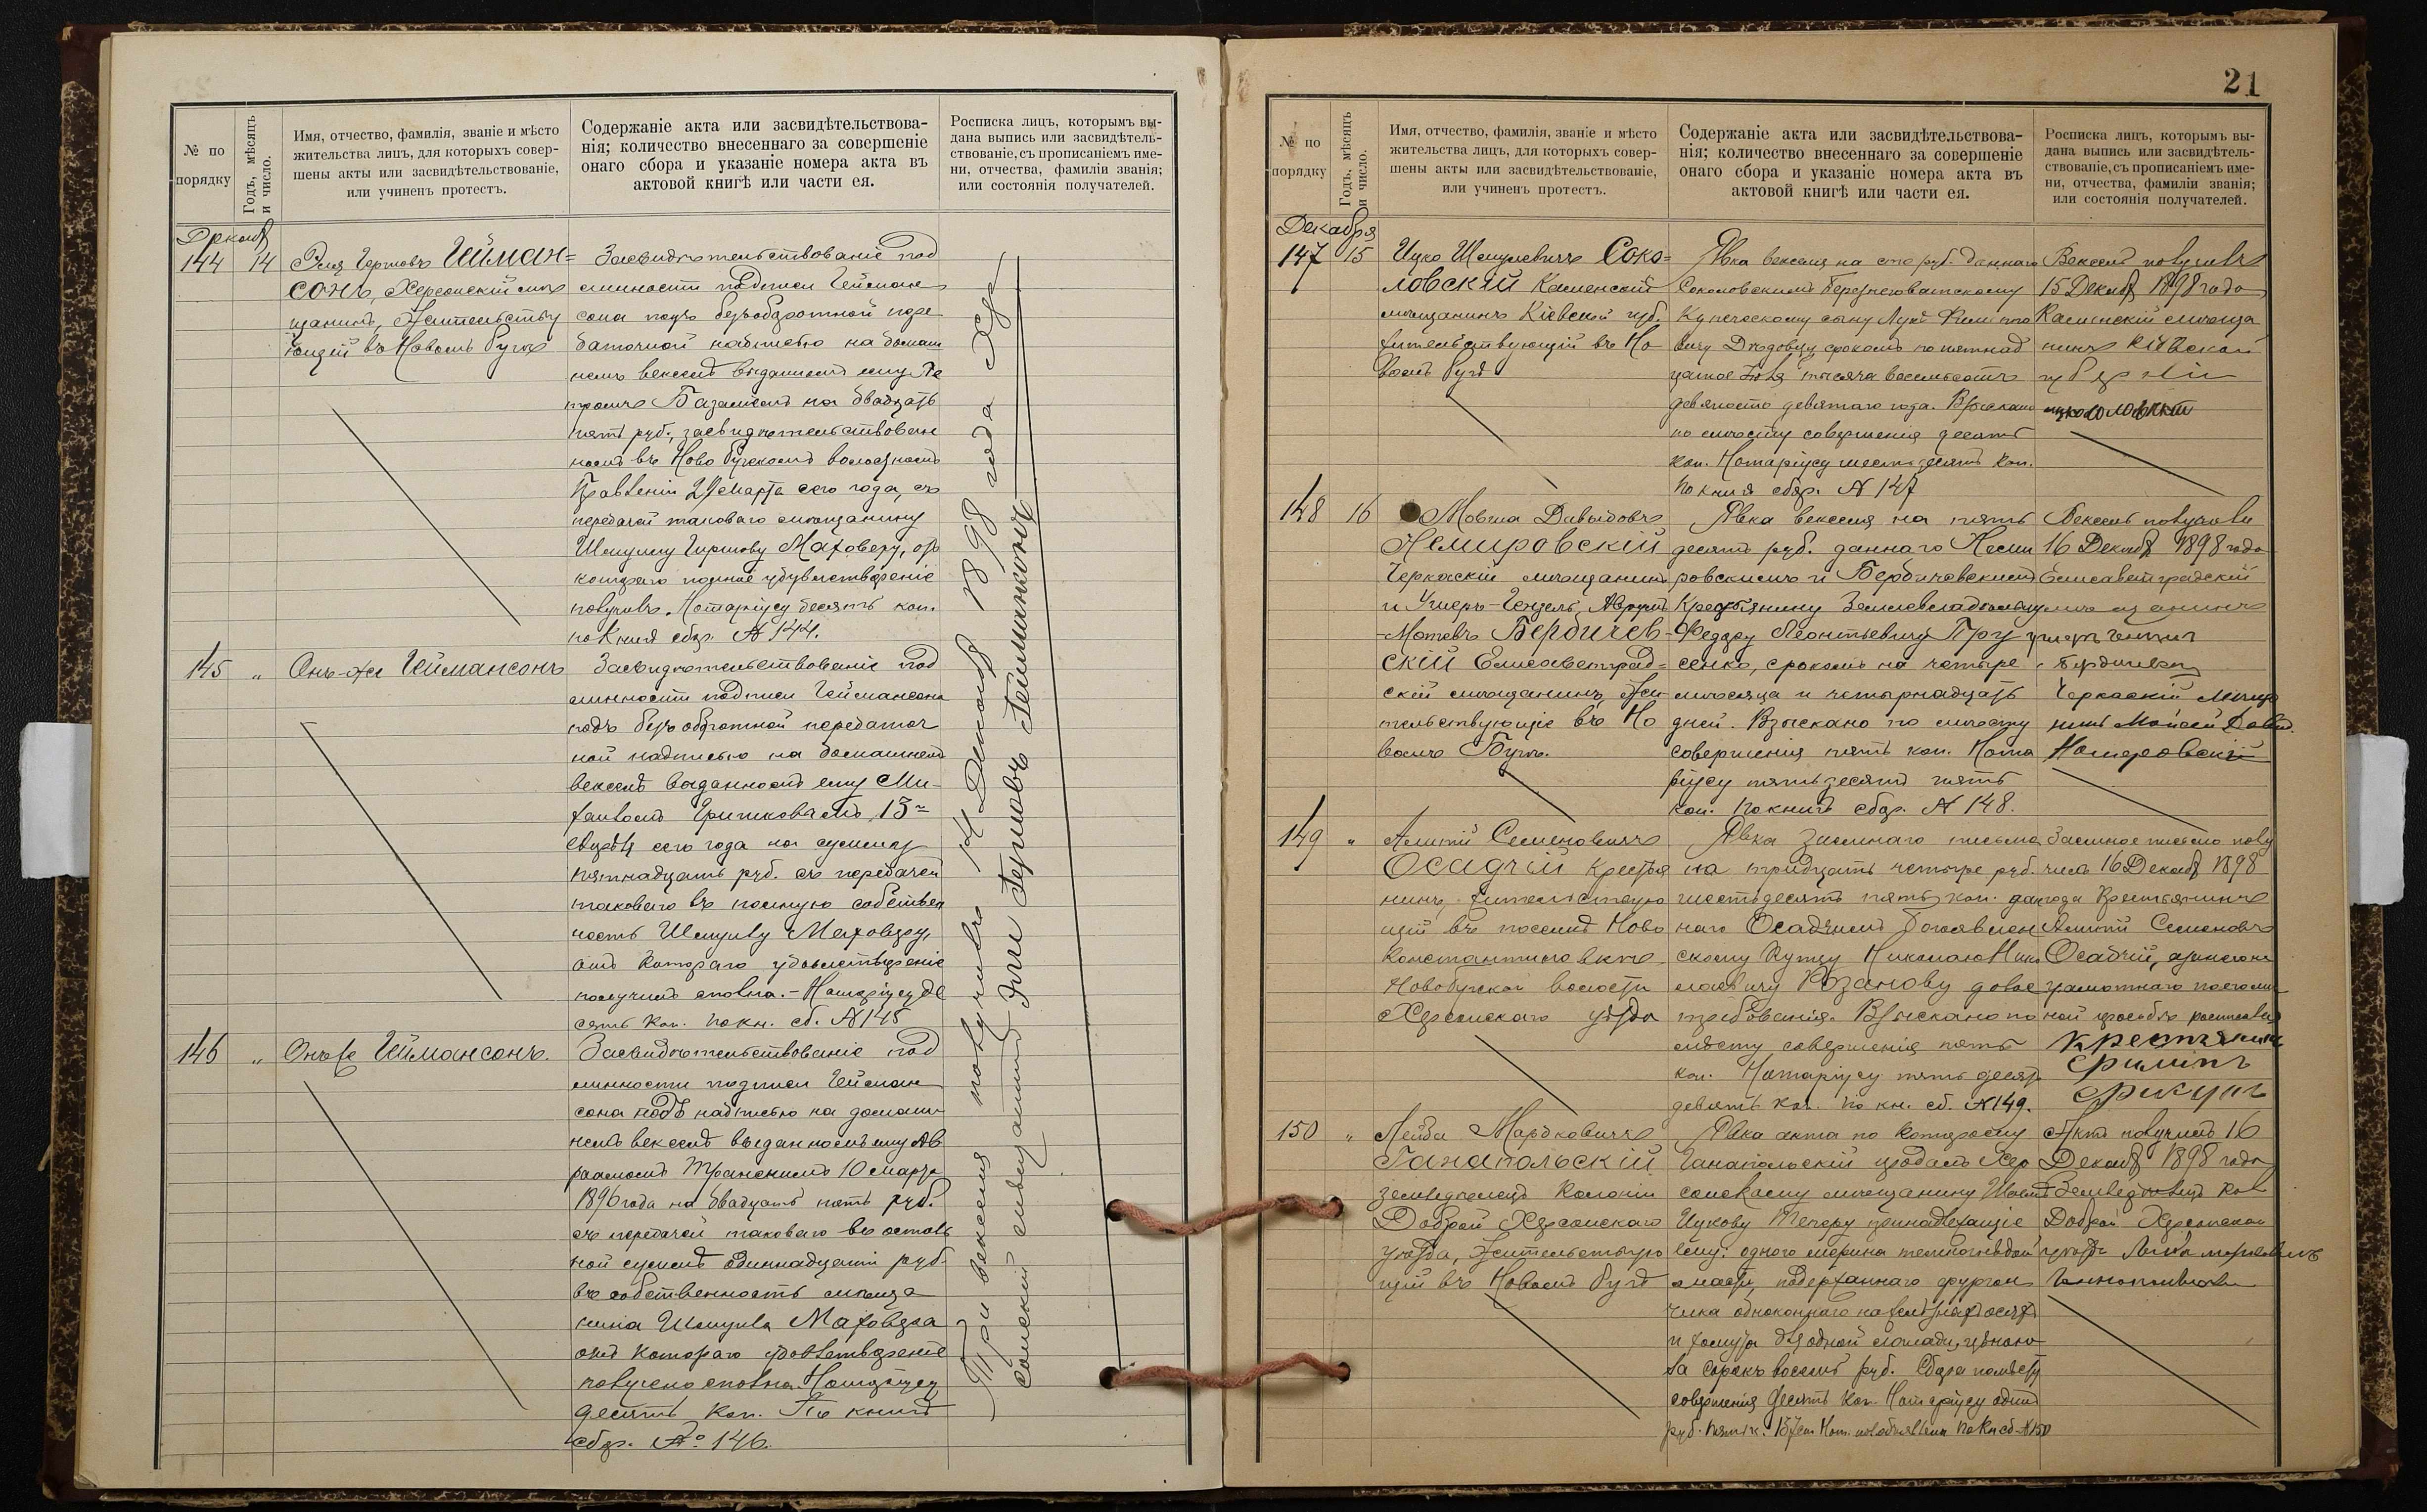 № по порядку
Годъ, мѣсяцъ и число.
Имя, отчество, фамилія, званіе и мѣсто
жительства лицъ, для которыхъ совер-
шены акты или засвидѣтельствованіе,
или учиненъ протестъ.
Содержаніе акта или засвидѣтельствова-
нія; количество внесеннаго за совершеніе
онаго сбора и указаніе номера акта въ
актовой книгѣ или части ея.
Росписка лицъ, которымъ вы-
дана выпись или засвидѣтель-
ствованіе, съ прописаніемъ име-
ни, отчества, фамиліи званія;
или состоянія получателей.
144 14
Гершовъ Гейман=
сонъ, Херсонскій мѣ
щанинъ, жительству
ющій въ Новомъ Бугѣ
Засвидѣтельствованіе под
линности подписи Гейман
сона подъ безоборотной пере
даточной надписью на домаш
немъ векселѣ выданномъ ему Пе
тромъ на двадцать
пять руб., засвидѣтельствован
номъ въ Ново Бугскомъ волостномъ
Правленіи Марта сего года, съ
передачей таковаго мѣщанину
Шмулю Гиршову Маховеру, отъ
котораго полное удовлетвореніе
получилъ. Нотаріусу десять коп.
по книгѣ сбор. № 144.
145 „
Онъ-же Геймансонъ
Засвидѣтельствованіе под
линности подписи Геймансона
подъ безъоборотной передаточ
ной надписью на домашнемъ
векселѣ выданномъ ему Ми-
13
сего года на сумму
пятнадцать руб. съ передачей
таковаго въ полную собствен
ность Шмулю Маховеру,
отъ котораго удовлетвореніе
получилъ сполна. - Нотаріусу де
сять коп. по кн. сб. № 145
146 „
Онъ же Геймансонъ.
Засвидѣтельствованіе под
линности подписи Гейман
сона подъ надписью на домаш
немъ векселѣ выданномъ ему Ав
раамомъ 10 Марта
1896 года на двадцать пять руб.
съ передачей таковаго въ осталь
ной суммѣ одиннадцати руб.
въ собственность мѣща
нина Шмуля Маховера
отъ котораго удовлетвореніе
получено сполна. Нотаріусу
десять коп. По книгѣ
сбор. № 146.
Три векселя получилъ 14 Декабря 1898 года Хер
сонскій мѣщанинъ Гершовъ Геймансонъ
21
№ по порядку
Годъ, мѣсяцъ и число.
Имя, отчество, фамилія, званіе и мѣсто
жительства лицъ, для которыхъ совер-
шены акты или засвидѣтельствованіе,
или учиненъ протестъ.
Содержаніе акта или засвидѣтельствова-
нія; количество внесеннаго за совершеніе
онаго сбора и указаніе номера акта въ
актовой книгѣ или части ея.
Росписка лицъ, которымъ вы-
дана выпись или засвидѣтель-
ствованіе, съ прописаніемъ име-
ни, отчества, фамиліи званія;
или состоянія получателей.
Декабря
147 15
Ицко Шмулевичъ Соко=
ловскій Каменскій
мѣщанинъ Кіевской губ.
жительствующій въ Но
вомъ Бугѣ
Явка векселя на сто руб. даннаго
Соколовскимъ Березнеговатскому
Купеческому сыну
Дѣдовцу срокомъ по пятнад
цатое тысяча восемьсотъ
девяносто девятаго года. Взыскано
по мѣсту совершенія десять
коп. Нотаріусу шестьдесятъ коп.
по книгѣ сбор. № 147
Вексель получилъ
15 Декабря 1898 года
Каменскій мѣща
нинъ Кіевской
губерніи
148 16
Мовша Давыдовъ
Немировскій
Черкаскій мѣщанинъ
Мотевъ Бердичев-
скій Елисаветград=
скій мѣщанинъ, жи
тельствующіе въ Но
вомъ Бугѣ.
Явка векселя на пять
десятъ руб. даннаго Неми
ровскимъ и Бердичевскимъ
Крестьянину Землевладѣльцу
Федору Леонтьевичу
сенко, срокомъ на четыре
мѣсяца и четырнадцать
дней. Взыскано по мѣсту
совершенія пять коп. Нота
ріусу пятьдесятъ пять
коп. по книгѣ сбор. № 148.
Вексель получили
16 Декабря 1898 года
Елисаветградскій
мѣщанинъ
Бердичевскій
Черкаскій Мѣща
нинъ Мойсей Давид.
Немеровскій
149 „
Семеновичъ
Осадчій крестья
нинъ, жительствую
щій въ поселкѣ Ново
Константиновкѣ
Новобугской волости
Херсонскаго уѣзда
Явка заемнаго письма
на тридцать четыре руб.
шестьдесятъ пять коп. дан
наго Осадчимъ Богоявлен
скому Купцу Николаю Нико
лаевичу Розанову до вос
требованія. Взыскано по
мѣсту совершенія пять
коп. Нотаріусу пять десятъ
девять коп. по кн. сб. № 149.
Заемное письмо полу
чилъ 16 Декабря 1898
года Крестьянинъ
Семеновъ
Осадчій, а за него не
грамотнаго по его лич
ной просьбѣ росписался
крестьянинъ
150 „
Лейба Мардковичъ
Ганапольскій
земледѣлецъ Колоніи
Доброй Херсонскаго
уѣзда, жительствую
щій въ Новомъ Бугѣ
Явка акта по которому
Ганапольскій продалъ Хер
сонскому мѣщанину
Ицкову принадлежащіе
ему: одного мерина темногнѣдой
масти, подержаннаго фургон
чика одноконнаго на желѣзныхъ осяхъ
и хомута для одной лошади, цѣною
за сорокъ восемь руб. Сбора по мѣсту
совершенія десять коп. Нотаріусу одинъ
руб.
Актъ получилъ 16
Декабря 1898 года
Земледѣлецъ Кол
Доброй Херсонскаго
уѣзда